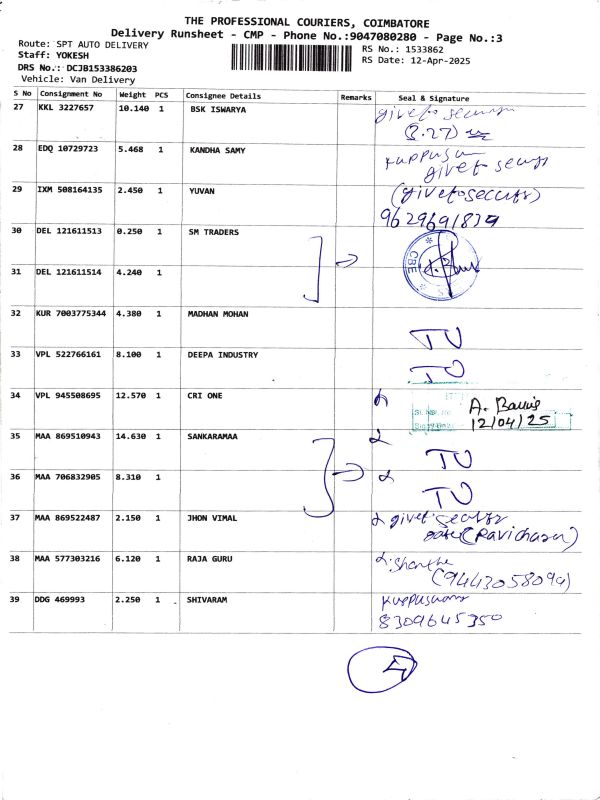 THE PROFESSIONAL COURIERS, COIMBATORE
Delivery Runsheet - CMP - Phone No.:9047080280 - Page No.:3
Route: SPT AUTO DELIVERY
Staff: YOKESH
DRS No.: DCJB153386203
Vehicle: Van Delivery
RS No.: 1533862
RS Date: 12-Apr-2025
S No Consignment No Weight PCS Consignee Details Remarks Seal & Signature
27 KKL 3227657 10.140 1 BSK ISWARYA give to
(8.27)
28 EDQ 10729723 5.468 1 KANDHA SAMY
give to
29 IXM 508164135 2.450 1 YUVAN (give to
9629691839
30 DEL 121611513 0.250 1 SM TRADERS
CBE
31 DEL 121611514 4.240 1
32 KUR 7003775344 4.380 1 MADHAN MOHAN
TU
33 VPL 522766161 8.100 1 DEEPA INDUSTRY
TU
34 VPL 945508695 12.570 1 CRI ONE
12/04/25
35 MAA 869510943 14.630 1 SANKARAMAA
TU
36 MAA 706832905 8.310 1
TU
37 MAA 869522487 2.150 1 JHON VIMAL
38 MAA 577303216 6.120 1 RAJA GURU
(9443058099)
39 DDG 469993 2.250 1 SHIVARAM
8309645350